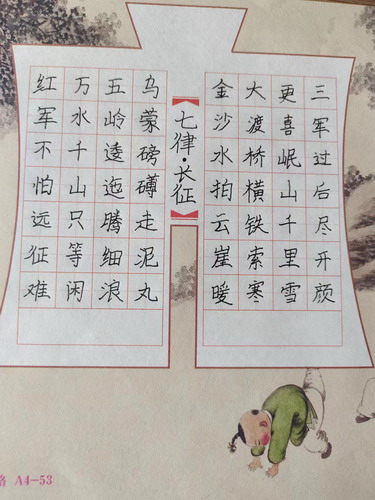 七律·长征
红军不怕远征难
万水千山只等闲
五岭逶迤腾细浪
乌蒙磅礴走泥丸
金沙水拍云崖暖
大渡桥横铁索寒
更喜岷山千里雪
三军过后尽开颜
A4-53